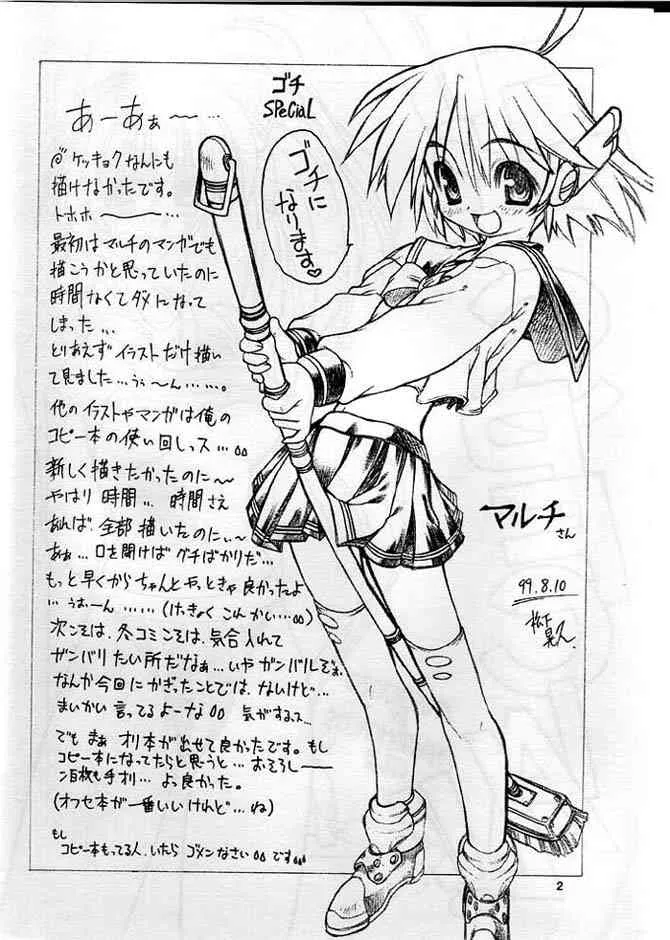 ゴチ
SPeCiaL
ゴチに
なります♡
あーあぁ〜…
ケッキョクなんにも
描けなかったです。
トホホ〜…
最初はマルチのマンガでも
描こうかと思っていたのに
時間なくてダメになって
しまった…
とりあえずイラストだけ描い
て見ました…うぅ〜ん……。
他のイラストやマンガは俺の
コピー本の使い回しっス…
新しく描きたかったのに〜
やはり時間…時間さえ
あれば、全部描いたのにぃ〜
あぁ…口を開けばグチばかりだ…
もっと早くからちゃんとやっときゃ良かったよ
…うおーん……(けっきょくこんかい…)
次こそは、冬コミこそは、気合入れて
ガンバリたい所だなぁ…いやガンバルぞぉ、
なんか今回にかぎったことでは、ないけど…
まいかい言ってるよーな 気がするっス…
でもまぁオリ本が出せて良かったです。もし
コピー本になってたらと思うと…おそろしー
ン百枚も手オリ…よっ良かった。
(オフセ本が一番いいけれど…ね)
もし
コピー本もってる人、いたら ゴメンなさい です
マルチ
さん
99.8.10
2